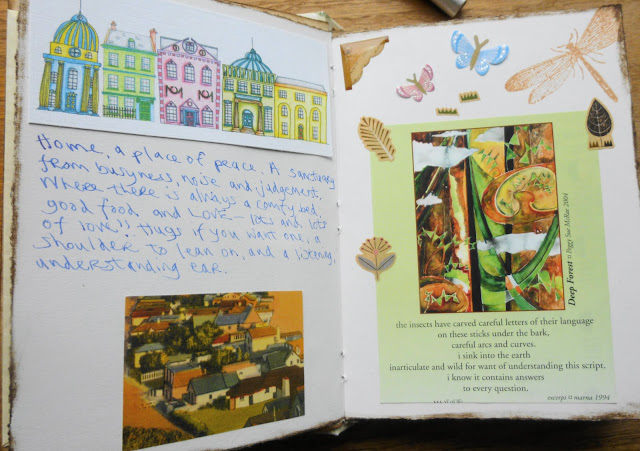 Home, a place of peace. A sanctuary
from busyness, noise and judgement,
Where there is always a comfy bed,
good food and LOVE - lots and lots
of love!! Hugs if you want one, a
shoulder to lean on, and a listening,
understanding ear.
Deep Forest ¤ Peggy Sue McRae 2004
the insects have carved careful letters of their language
on these sticks under the bark,
careful arcs and curves.
i sink into the earth
inarticulate and wild for want of understanding this script.
i know it contains answers
to every question.
excerpt ¤ marna 1994